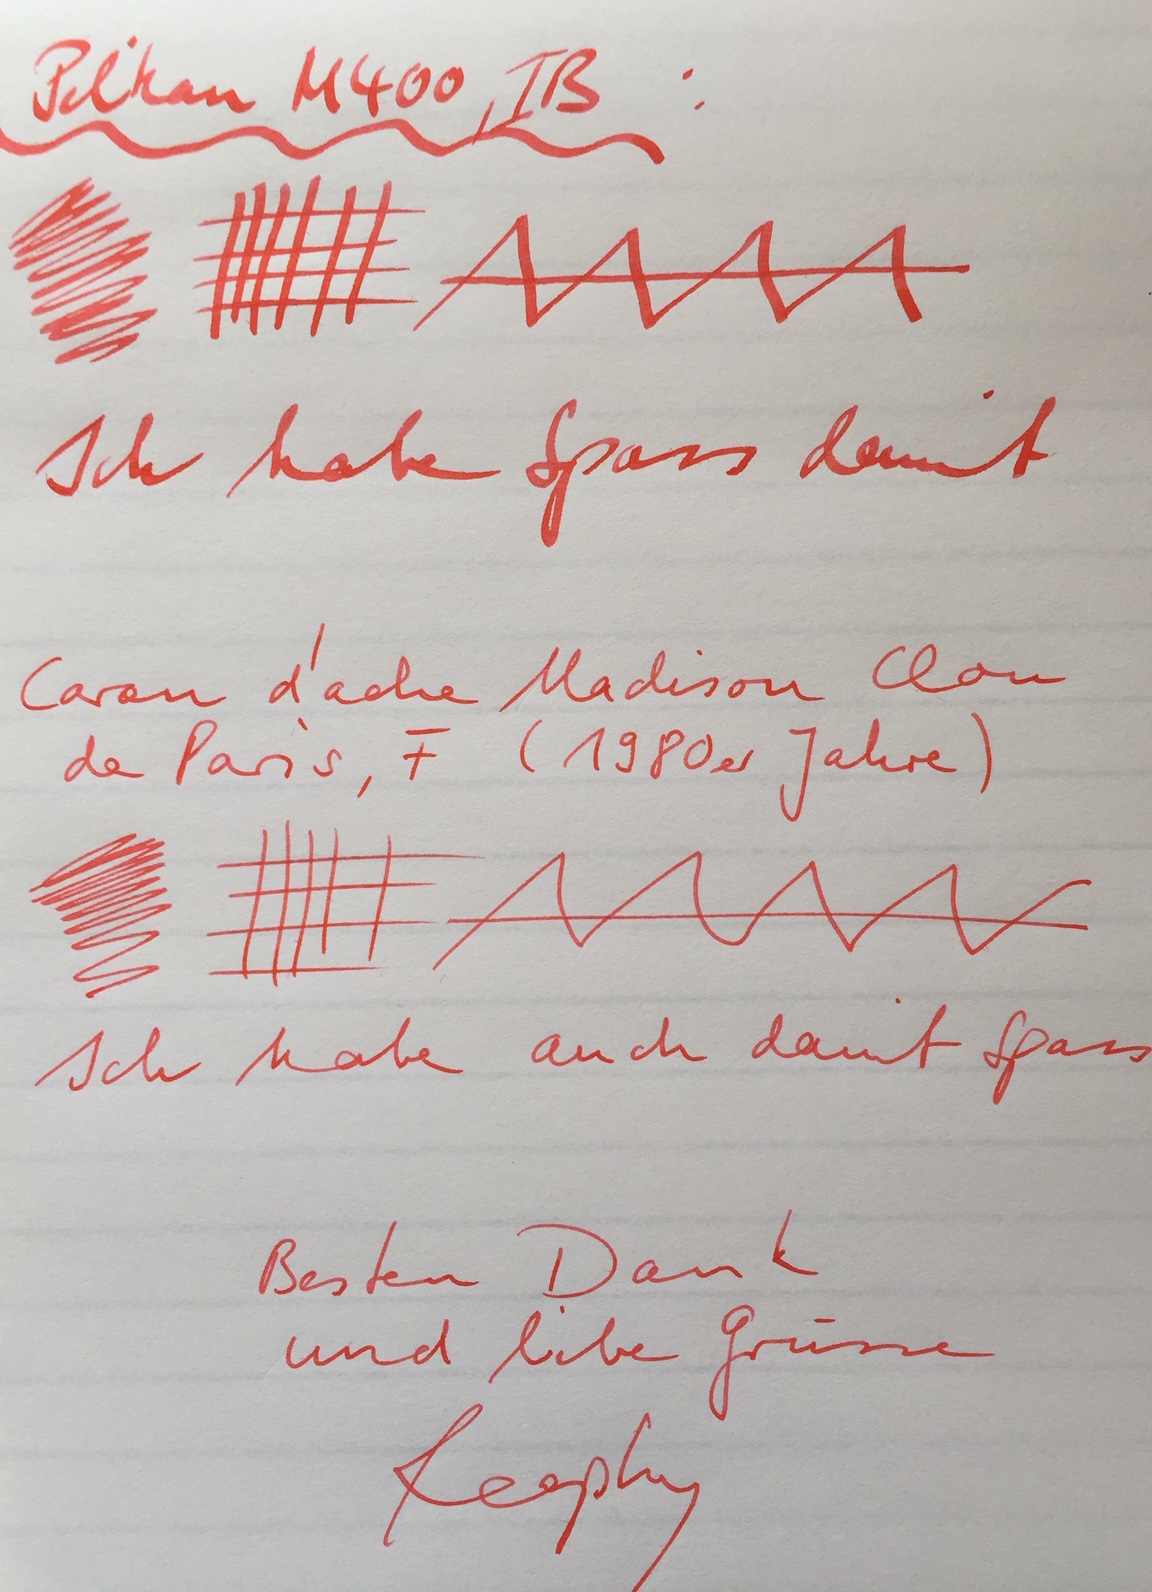 Pelikan M400, IB :
Ich habe Spass damit
Caran d'ache Madison Clou
de Paris, F (1980er Jahre)
Ich habe auch damit Spass
Besten Dank
und liebe Grüsse